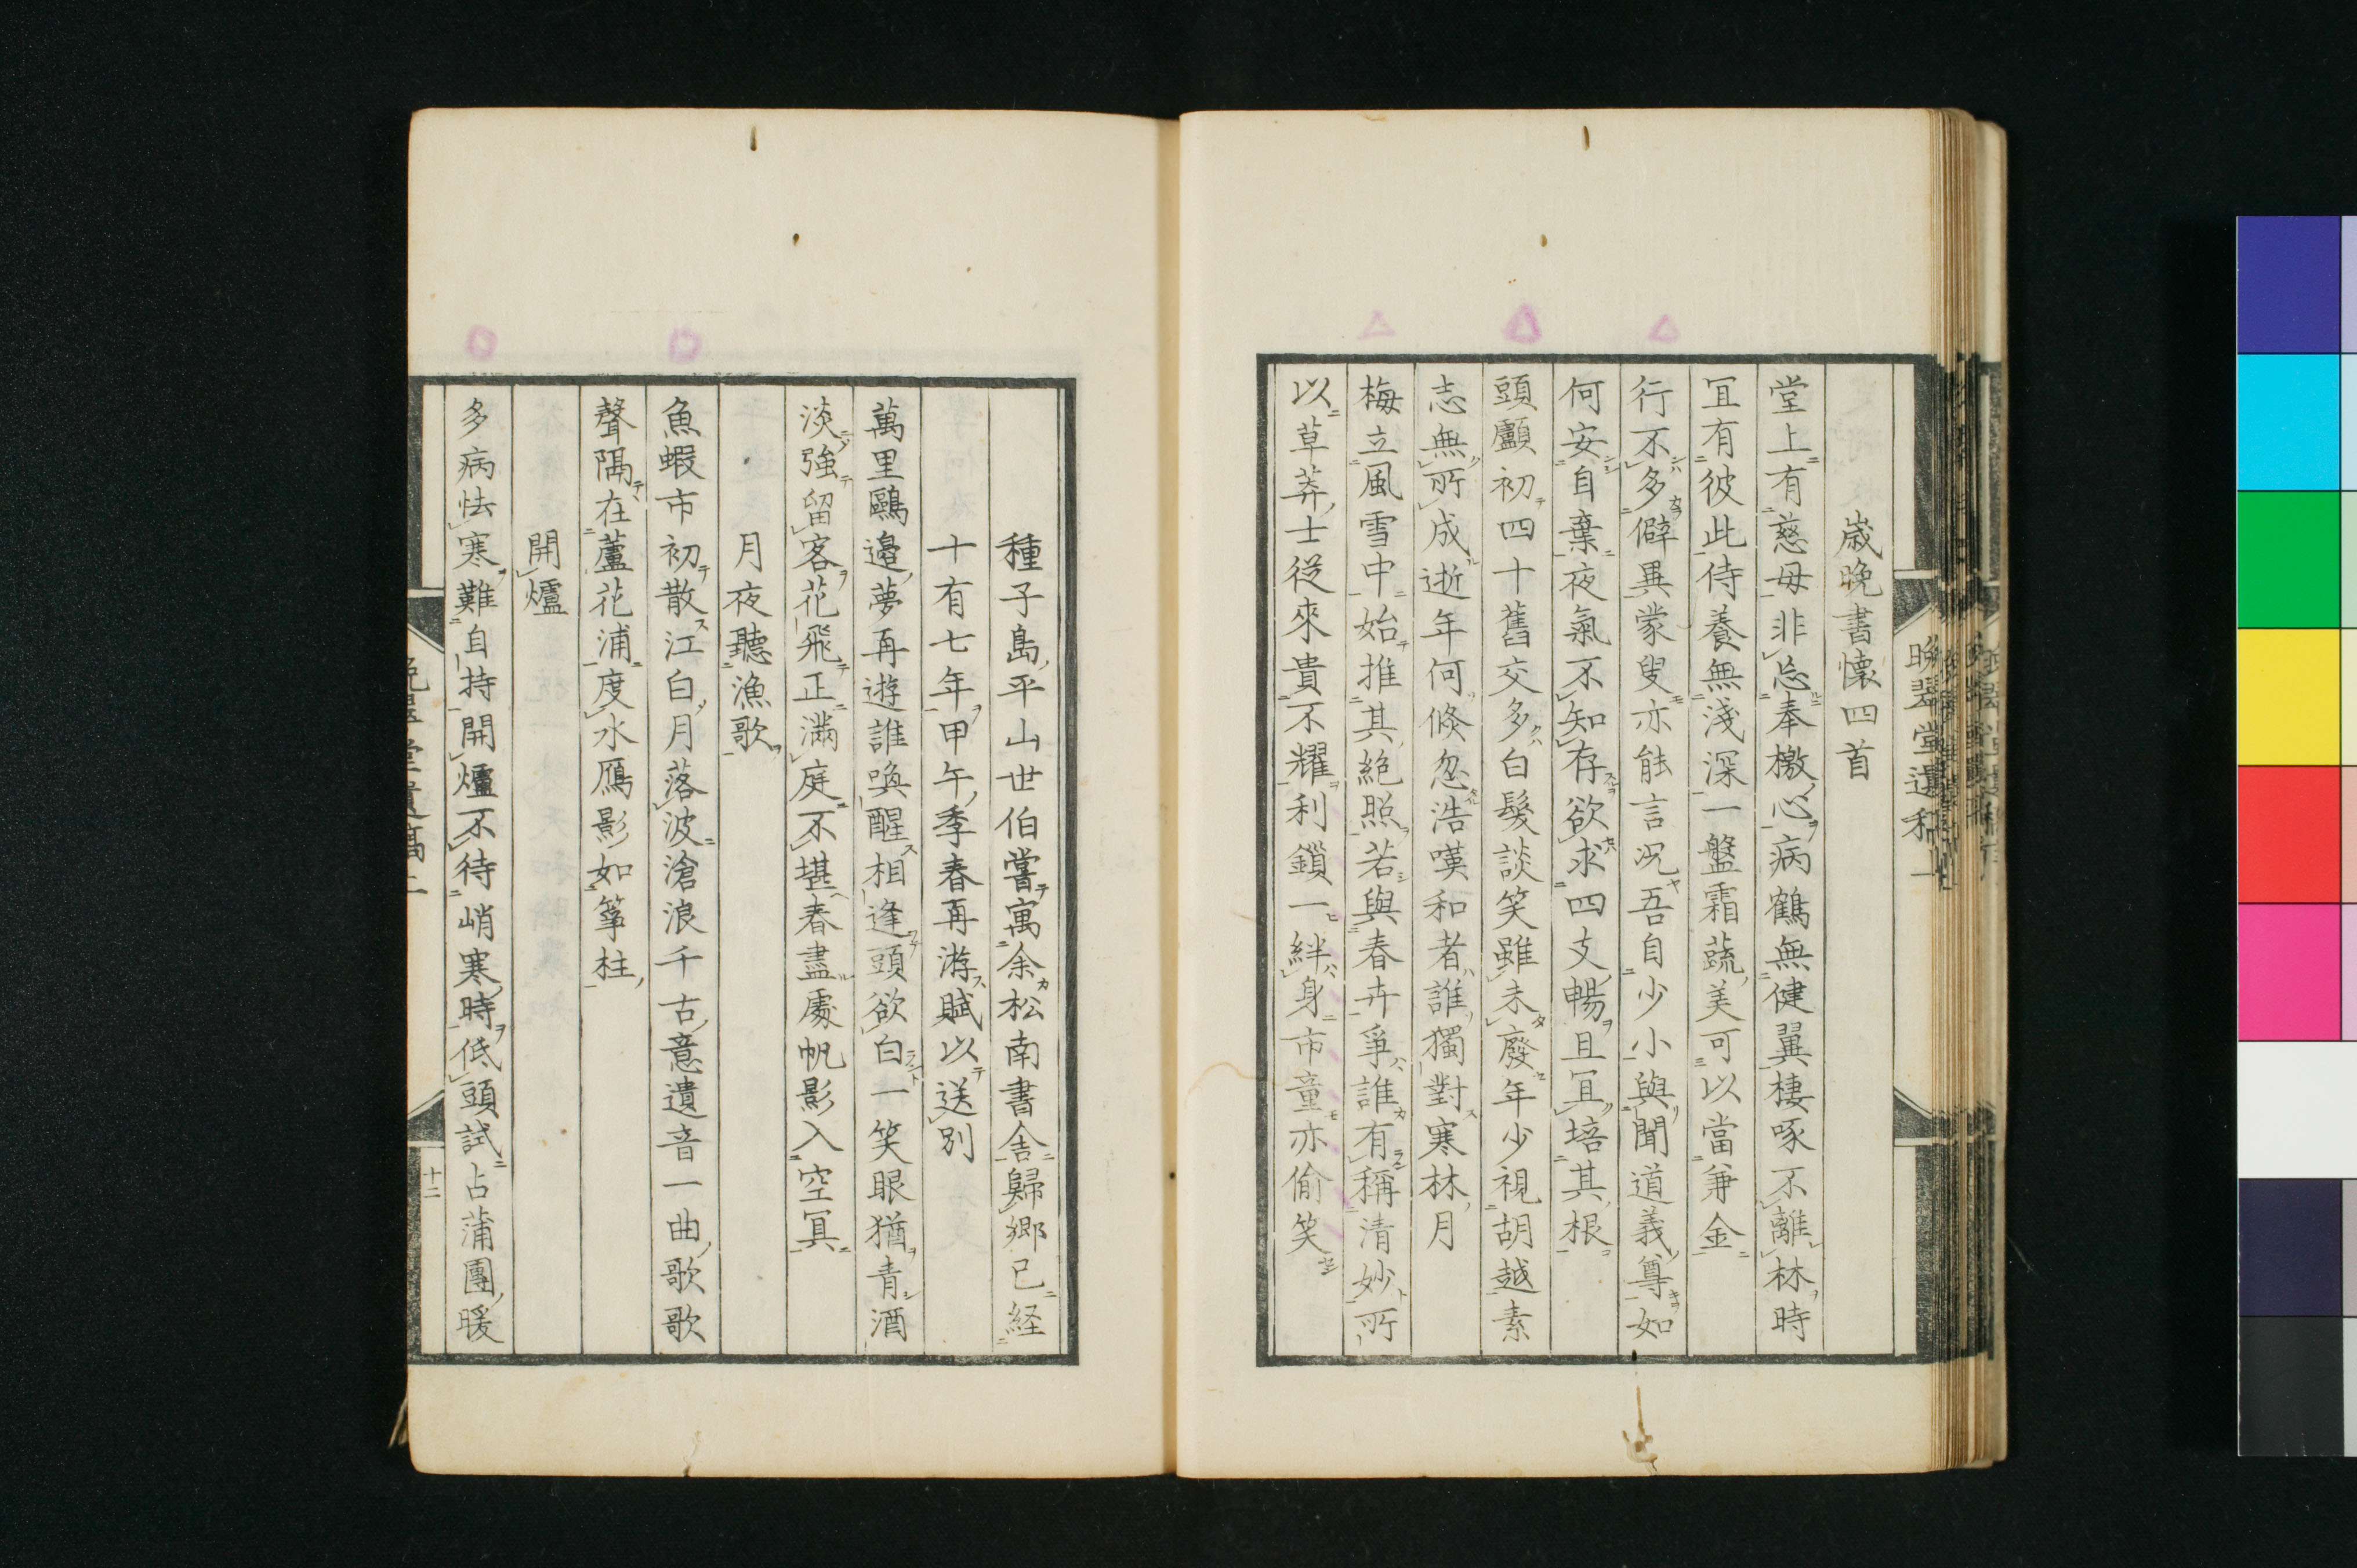 歳晩書懷四首
堂上有慈母非忘奉檄心病鶴無健翼棲啄不離林時
冝有彼此侍養無淺深一盤霜蔬美可以當兼金
行不多僻異蒙叟亦能言况吾自少小與聞道義尊如
何安自棄夜氣不知存欲求四支暢且冝培其根
頭顱初四十舊交多白髮談笑雖未廢年少視胡越素
志無所成逝年何倏忽浩嘆和者誰獨對寒林月
梅立風雪中始推其絶照若與春卉爭誰有稱清妙所
以草莽士從來貴不耀利鎖一絆身市童亦偷笑
種子島平山世伯嘗寓余松南書舎歸郷已経
十有七年甲午季春再游賦以送別
萬里鷗邉夢再遊誰喚醒相逢頭欲白一笑眼猶青酒
淡強留客花飛正滿庭不堪春盡處帆影入空冥
月夜聽漁歌
魚蝦市初散江白月落波滄浪千古意遺音一曲歌歌
聲隔在蘆花浦度水鴈影如箏柱
開爐
多病怯寒難自持開爐不待峭寒時低頭試占蒲團暖
晩翠堂遺稿
十二